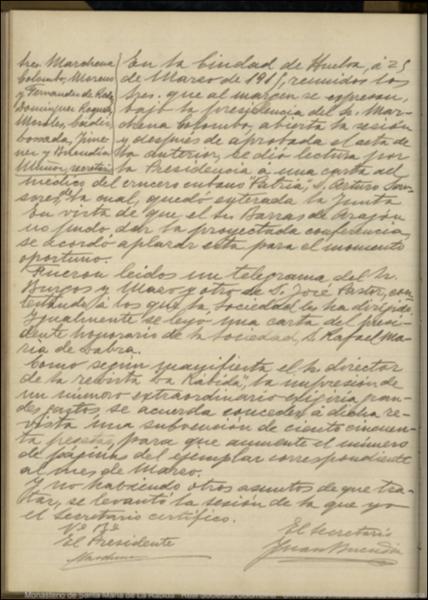 Sres. Marchena
Colombo, Moreno
y Fernández de Roda,
Domínguez Roqueta,
Morales, Garci-
bonada, Jime-
nez y Buendía
Muñoz, secretario
En la Ciudad de Huelva, á 25
de Marzo de 1915, reunidos los
Sres. que al margen se expresan,
bajo la presidencia del Sr. Mar-
chena Colombo, abierta la sesión
y después de aprobada el acta de
la anterior, se dió lectura por
la Presidencia a una carta del
médico del crucero cubano Patria, D. Arturo
de la cual, quedó enterada la Junta
En virtud de que el Sr. Barras de Aragón
no pudo dar la proyectada conferencia,
se acordó aplazar esta para el momento
oportuno.
Fueron leidos un telegrama del Sr.
Burgos y Mazo y otro de D. José Pastor, con-
testando á los que la Sociedad les ha dirigido.
Igualmente se leyó una carta del presi-
dente honorario de la Sociedad, D. Rafael Ma-
ria de Labra.
Como según manifiesta el Sr. director
de la revista "La Rábida", la impresión de
un número extraordinario exigiria gran-
des gastos, se acuerda conceder á dicha re-
vista una subvención de ciento cincuen-
ta pesetas, para que aumente el número
de páginas del ejemplar correspondiente
al mes de Marzo.
Y no habiendo otros asuntos de que tra-
tar, se levantó la sesión de la que yo
el Secretario certifico.
Vº Bº
El Presidente
Marchena
El Secretario
Juan Buendía